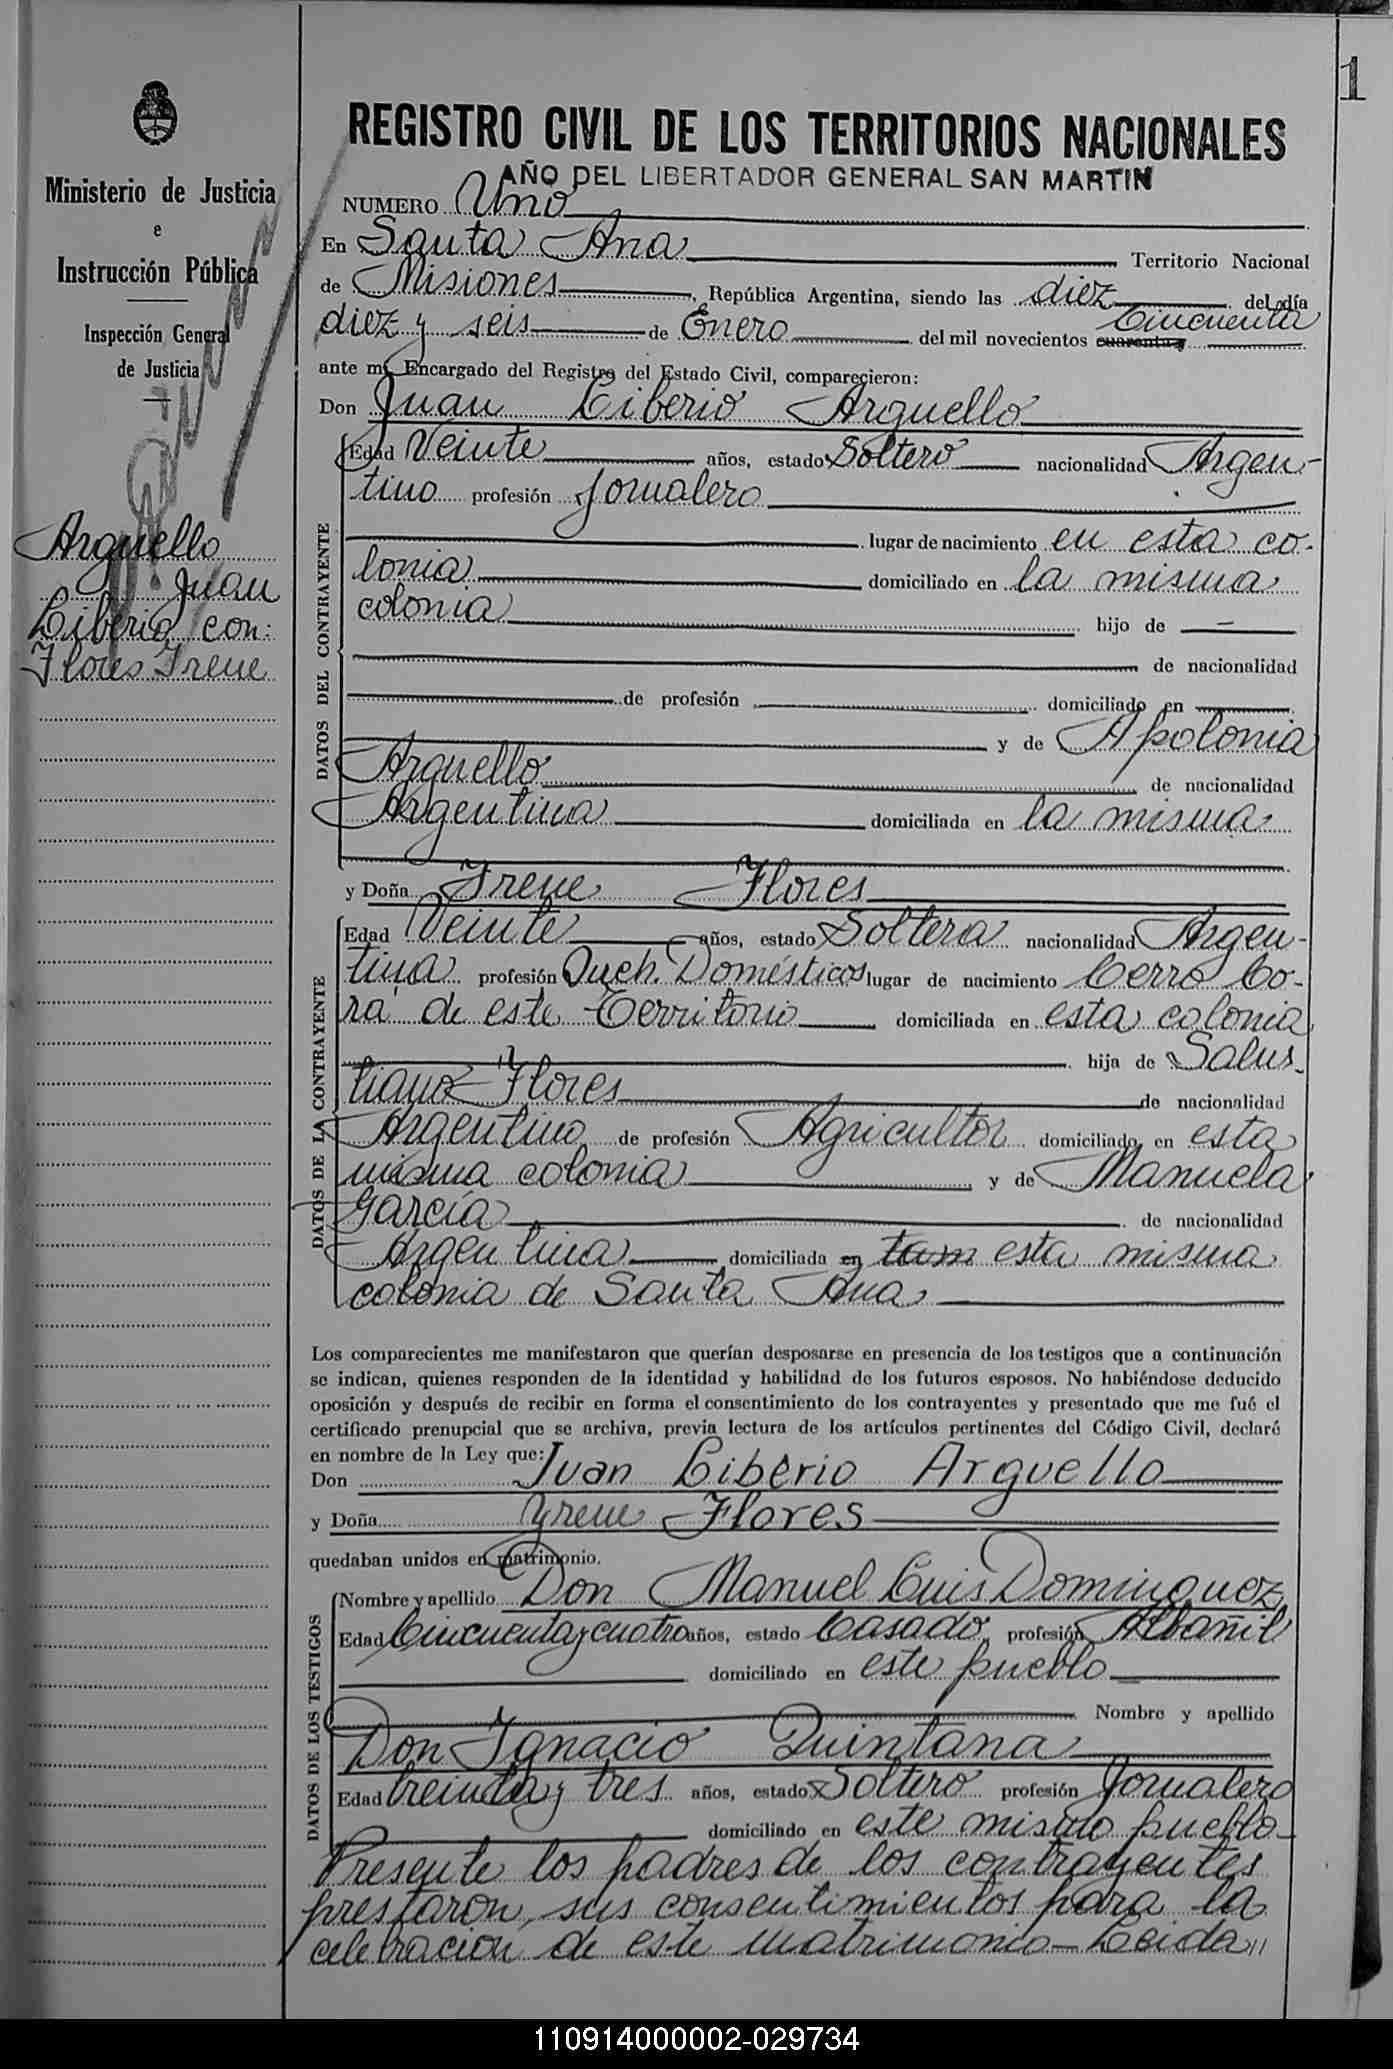 1
Ministerio de Justicia
e
Instrucción Pública
Inspección General
de Justicia
Arguello
Juan
Liberio con:
Flores Irene
REGISTRO CIVIL DE LOS TERRITORIOS NACIONALES
AÑO DEL LIBERTADOR GENERAL SAN MARTIN
NUMERO Uno
En Santa Ana Territorio Nacional
de Misiones, República Argentina, siendo las diez del día
diez y seis de Enero del mil novecientos cuarenta y Cincuenta
ante mí Encargado del Registro del Estado Civil, comparecieron:
Don Juan Liberio Arguello
DATOS DEL CONTRAYENTE
Edad Veinte años, estado Soltero nacionalidad Argen-
tino profesión Jornalero
lugar de nacimiento en esta co-
lonia domiciliado en la misma
colonia hijo de —
de nacionalidad
de profesión domiciliado en
y de Apolonia
Arguello de nacionalidad
Argentina domiciliada en la misma
y Doña Irene Flores
DATOS DE LA CONTRAYENTE
Edad Veinte años, estado Soltera nacionalidad Argen-
tina profesión Queh. Domésticos lugar de nacimiento Cerro Co-
rá de este Territorio domiciliada en esta colonia
hija de Salus-
tiano Flores de nacionalidad
Argentino de profesión Agricultor domiciliado en esta
misma colonia y de Manuela
García de nacionalidad
Argentina domiciliada en tam esta misma
colonia de Santa Ana
Los comparecientes me manifestaron que querían desposarse en presencia de los testigos que a continuación
se indican, quienes responden de la identidad y habilidad de los futuros esposos. No habiéndose deducido
oposición y después de recibir en forma el consentimiento de los contrayentes y presentado que me fué el
certificado prenupcial que se archiva, previa lectura de los artículos pertinentes del Código Civil, declaré
en nombre de la Ley que:
Don Juan Liberio Arguello
y Doña Yrene Flores
quedaban unidos en matrimonio.
DATOS DE LOS TESTIGOS
Nombre y apellido Don Manuel Luis Dominguez
Edad Cincuenta y cuatro años, estado Casado profesión Albañil
domiciliado en este pueblo
Nombre y apellido
Don Ignacio Quintana
Edad treinta y tres años, estado Soltero profesión Jornalero
domiciliado en este mismo pueblo-
Presente los padres de los contrayentes
prestaron sus consentimientos para la
celebración de este matrimonio-Leida,,
110914000002-029734